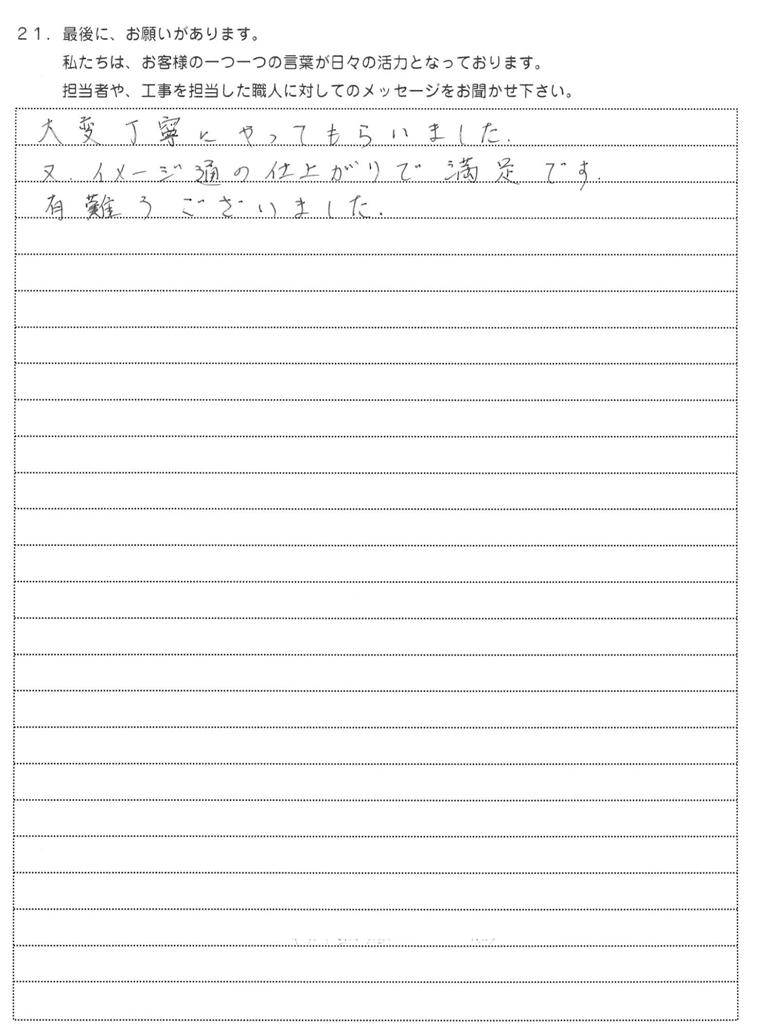 21. 最後に、お願いがあります。
私たちは、お客様の一つ一つの言葉が日々の活力となっております。
担当者や、工事を担当した職人に対してのメッセージをお聞かせ下さい。
大変丁寧にやってもらいました.
又.イメージ通の仕上がりで満足です.
有難うございました.